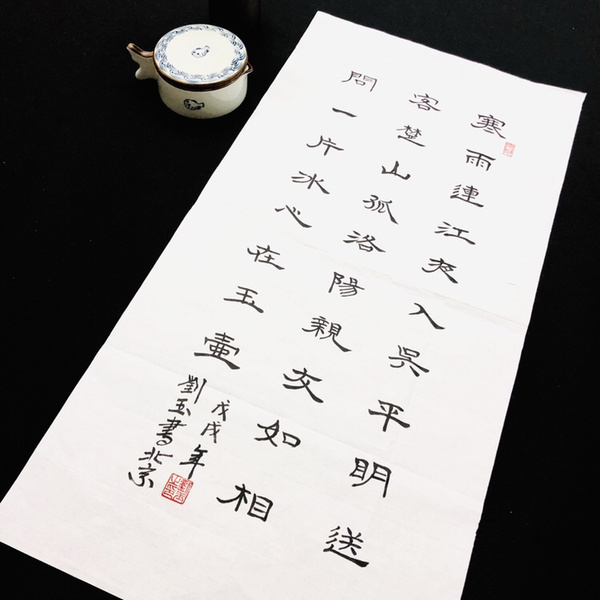 寒雨連江夜入吳平明送
客楚山孤洛陽親友如相
問一片冰心在玉壺
戊戌年
劉玉書北京